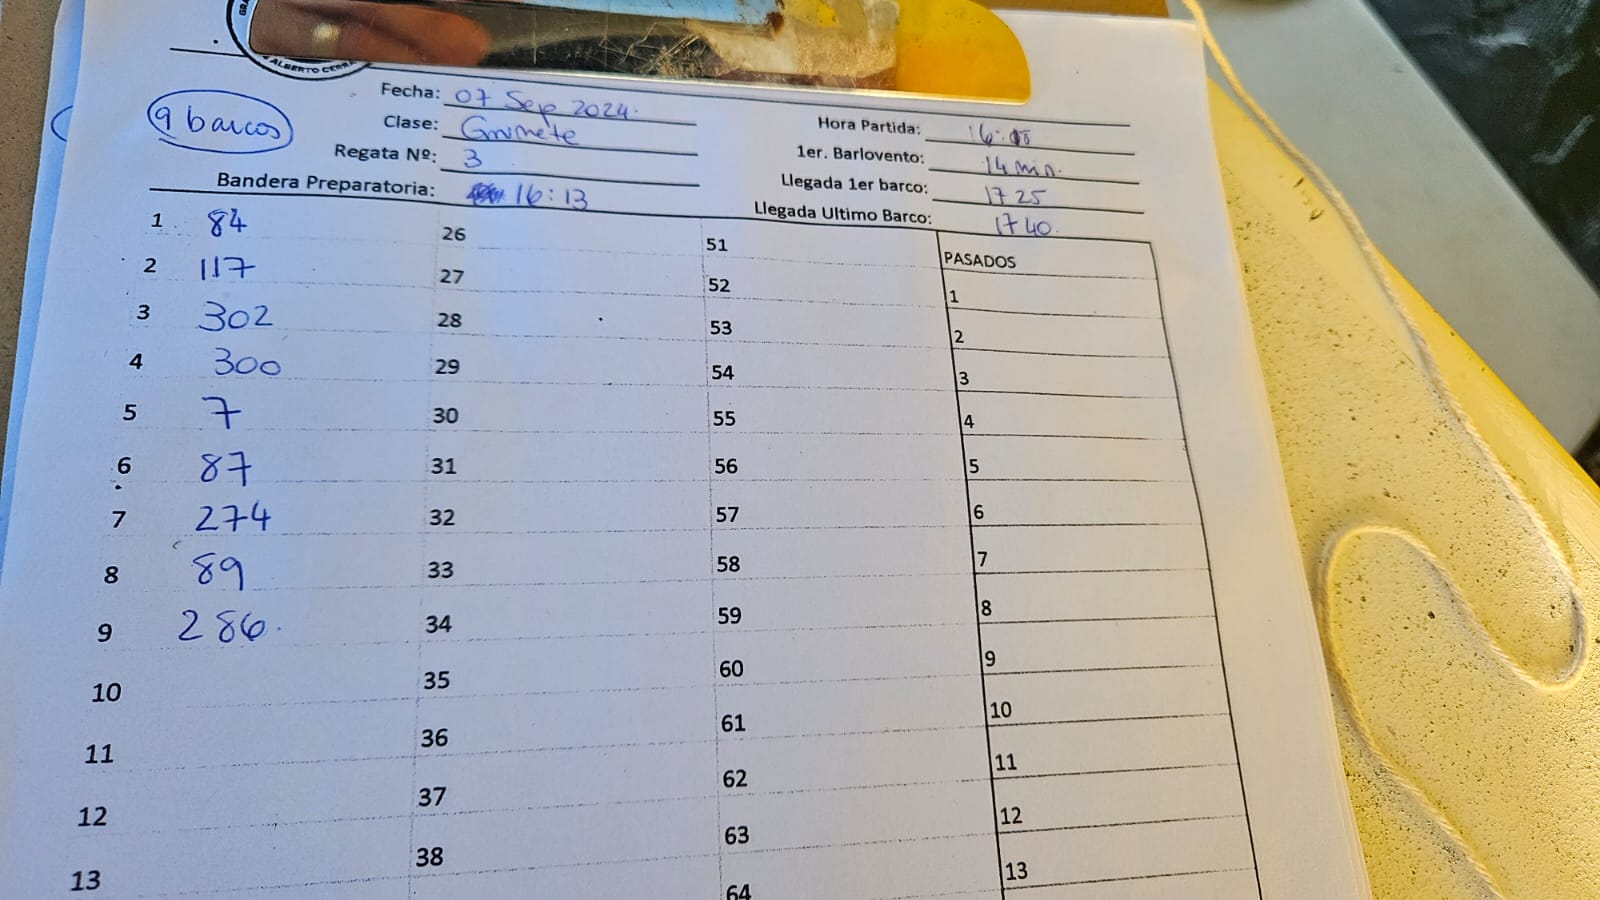 GRA
ALBERTO CERRA
9 barcos
Fecha: 07 Sep 2024.
Clase: Grumete
Regata Nº: 3
Bandera Preparatoria: 16:13
Hora Partida: 16:18
1er. Barlovento: 14 min.
Llegada 1er barco: 17 25
Llegada Ultimo Barco: 17 40.
1 84 26 51 PASADOS
2 117 27 52 1
3 302 28 53 2
4 300 29 54 3
5 7 30 55 4
6 87 31 56 5
7 274 32 57 6
8 89 33 58 7
9 286. 34 59 8
10 35 60 9
11 36 61 10
12 37 62 11
13 38 63 12
64 13